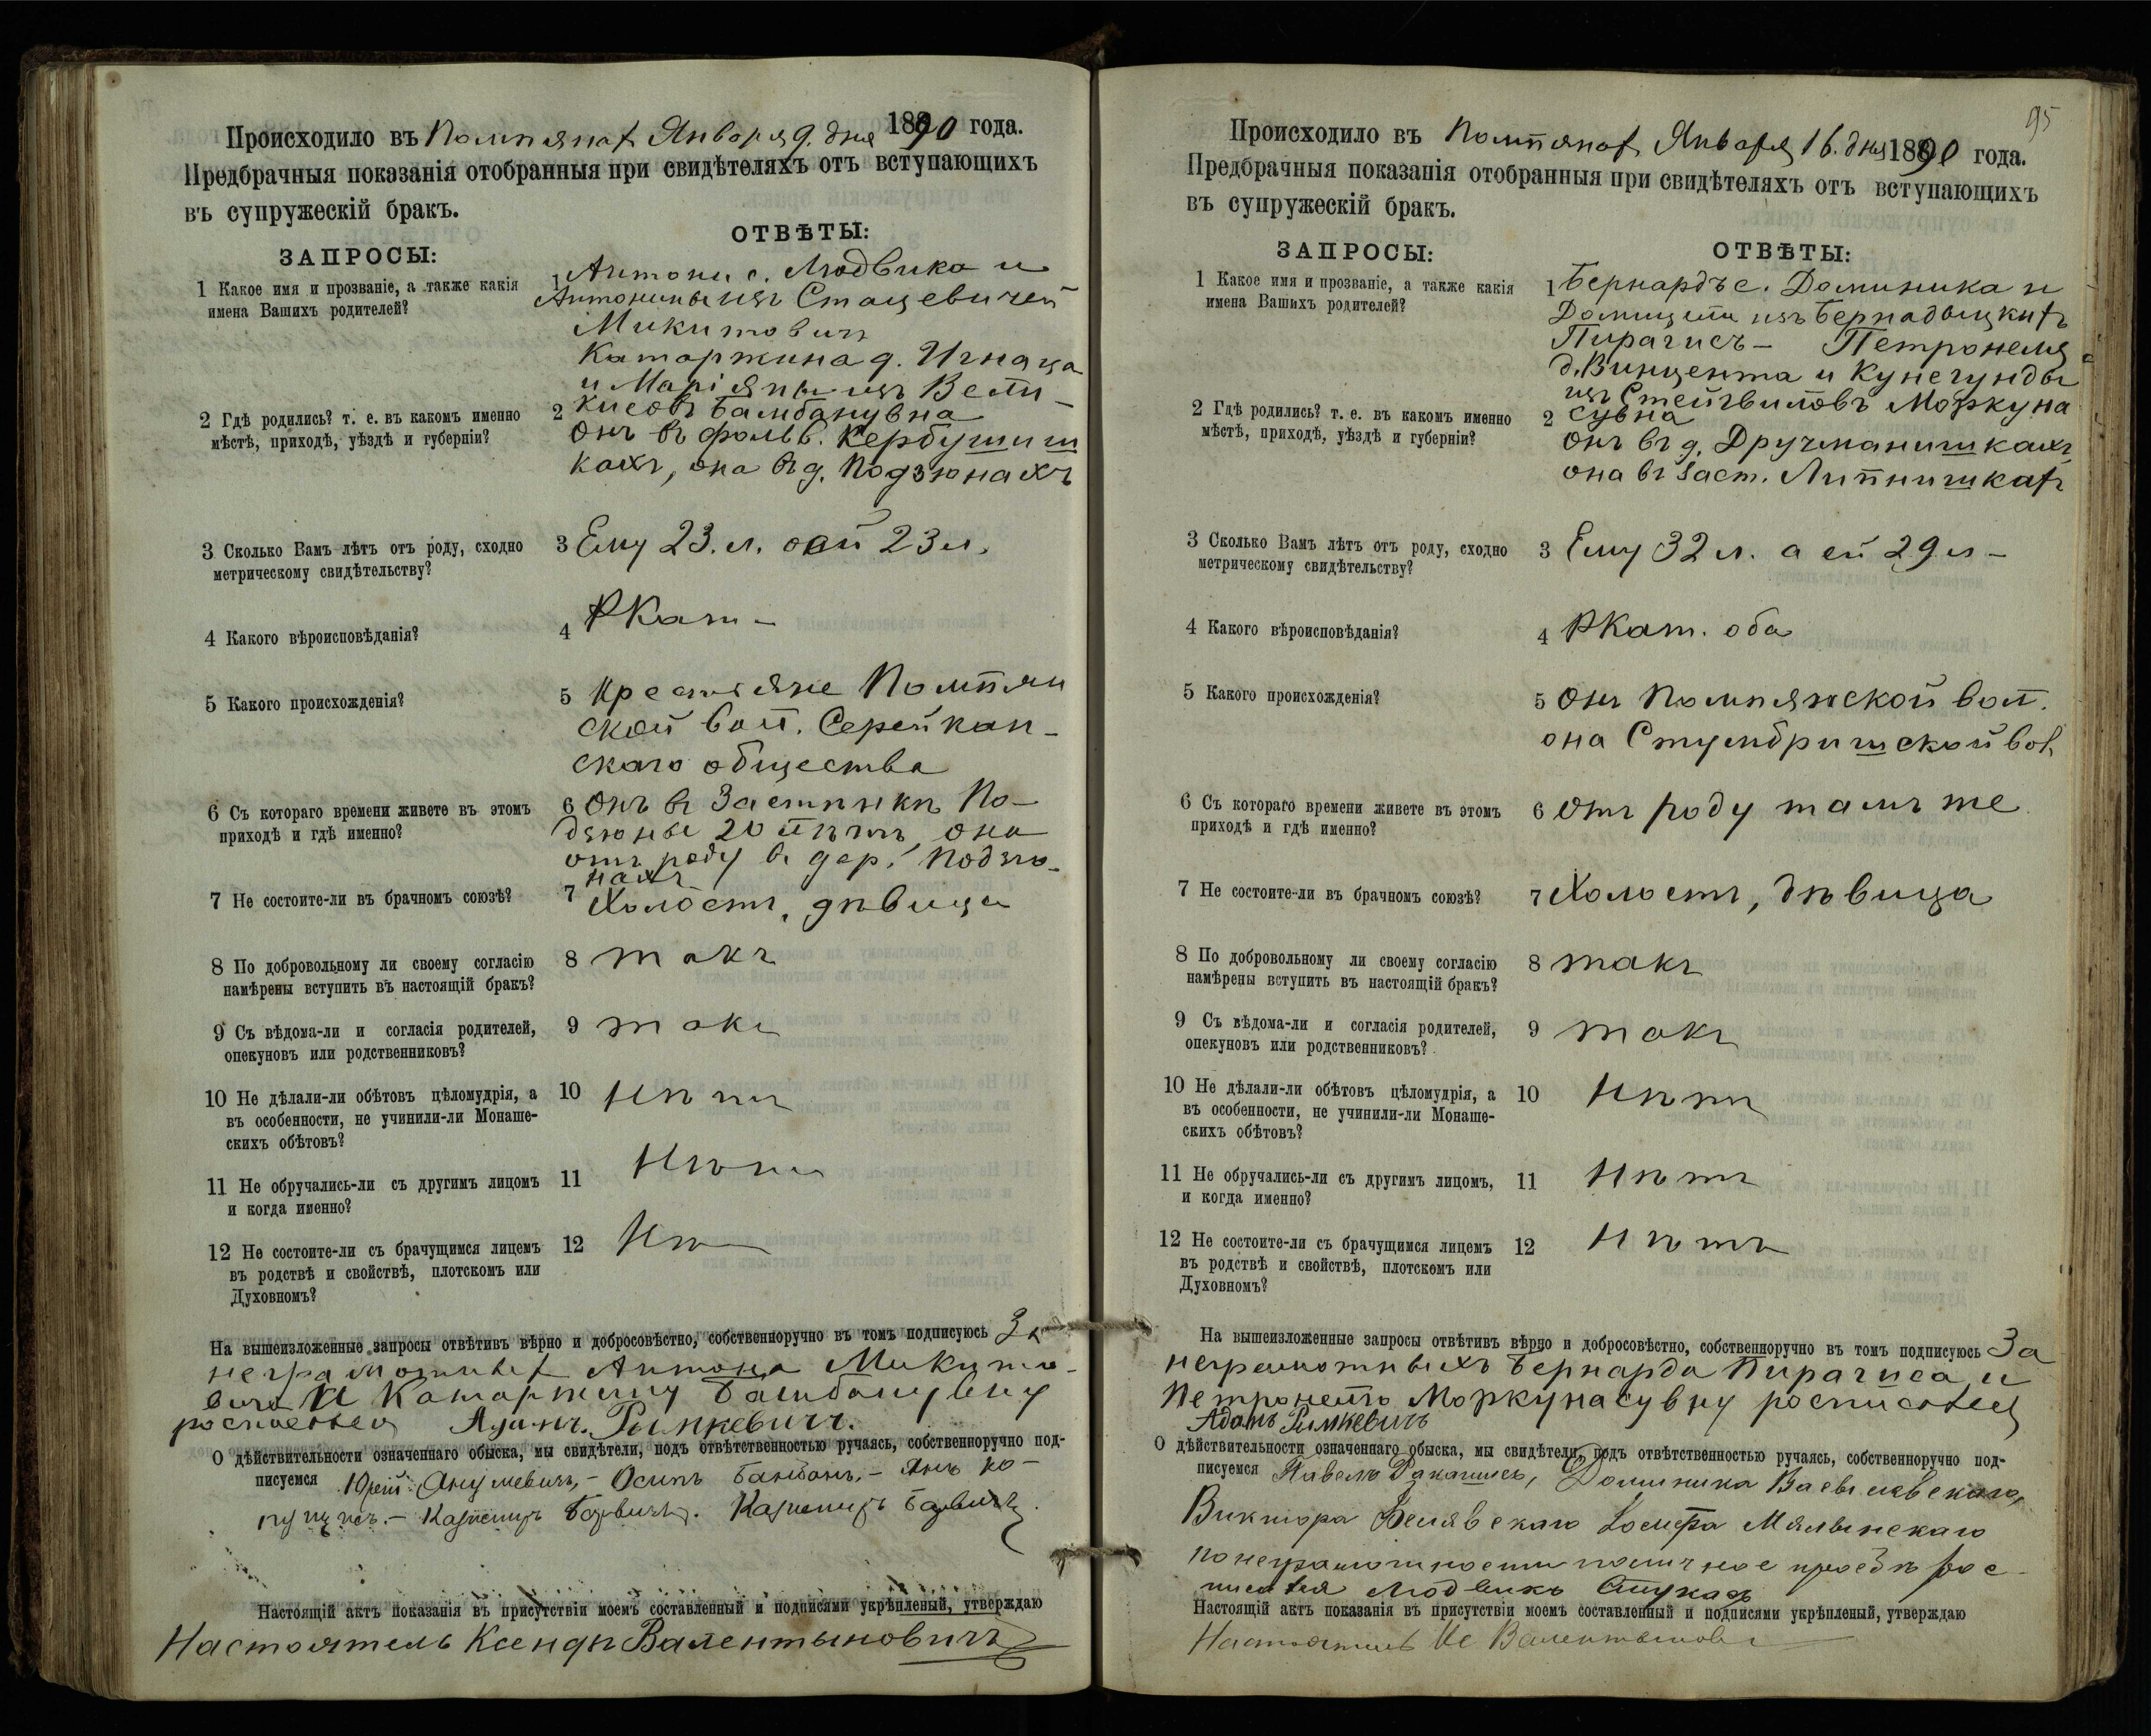 Происходило въ Помпянах Января 9. дня 1890 года.
Предбрачныя показанія отобранныя при свидѣтеляхъ отъ вступающихъ
въ супружескій бракъ.
ЗАПРОСЫ:
ОТВѢТЫ:
1 Какое имя и прозваніе, а также какія
имена Вашихъ родителей?
1 Антони с. Людвика и
Антонины изъ Стацевичей
Микитовичъ
Катаржина д. Игнаца
и Маріяны изъ Вели-
2 Гдѣ родились? т. е. въ какомъ именно
мѣстѣ, приходѣ, уѣздѣ и губерніи?
2 кисовъ Бамбанувна
Онъ въ фольв. Кербушиш
кахъ, она въ д. Подзюнахъ
3 Сколько Вамъ лѣтъ отъ роду, сходно
метрическому свидѣтельству?
3 Ему 23. л. а ей 23 л.
4 Какого вѣроисповѣданія?
4 РКат-
5 Какого происхожденія?
5 Крестьяне Помпян
ской вол. Серейкан-
скаго общества
6 Съ котораго времени живете въ этомъ
приходѣ и гдѣ именно?
6 Онъ въ Застѣнкѣ По-
дзюны 20 лѣтъ, она
отъ роду въ дер. Подзю-
нахъ
7 Не состоите-ли въ брачномъ союзѣ?
7 Холостъ, дѣвица
8 По добровольному ли своему согласію
намѣрены вступить въ настоящій бракъ?
8 такъ
9 Съ вѣдома-ли и согласія родителей,
опекуновъ или родственниковъ?
9 такъ
10 Не дѣлали-ли обѣтовъ цѣломудрія, а
въ особенности, не учинили-ли Монаше-
скихъ обѣтовъ?
10 Нѣтъ
11 Не обручались-ли съ другимъ лицомъ
и когда именно?
11 Нѣтъ
12 Не состоите-ли съ брачущимся лицемъ
въ родствѣ и свойствѣ, плотскомъ или
Духовномъ?
12 Нѣтъ
На вышеизложенные запросы отвѣтивъ вѣрно и добросовѣстно, собственноручно въ томъ подписуюсь За
неграмотных Антона Микито-
вича и Катаржину Бамбанувну
росписался Адамъ Рымкевичъ.
О дѣйствительности означеннаго обыска, мы свидѣтели, подъ отвѣтственностью ручаясь, собственноручно под-
писуемся Юрій Янушевичъ, - Осипъ Бамбанъ, - Янъ
Казимиръ Казимиръ
Настоящій актъ показанія въ присутствіи моемъ составленный и подписями укрѣпленый, утверждаю
Настоятель Ксендзъ Валентыновичъ
95
Происходило въ Помпянах Января 16. дня 1890 года.
Предбрачныя показанія отобранныя при свидѣтеляхъ отъ вступающихъ
въ супружескій бракъ.
ЗАПРОСЫ:
ОТВѢТЫ:
1 Какое имя и прозваніе, а также какія
имена Вашихъ родителей?
1 Бернардъ с. Доминика и
Домицели изъ Бернадыцкихъ
Пирагисъ - Петронеля
д. Винцента и Кунегунды
изъ Стейгвиловъ Моркуна
2 Гдѣ родились? т. е. въ какомъ именно
мѣстѣ, приходѣ, уѣздѣ и губерніи?
2 сувна
Онъ въ д. Дручманишкахъ
она въ Заст. Липнишках
3 Сколько Вамъ лѣтъ отъ роду, сходно
метрическому свидѣтельству?
3 Ему 32 л. а ей 29 л-
4 Какого вѣроисповѣданія?
4 РКат. оба
5 Какого происхожденія?
5 Онъ Помпянской вол.
она Стумбришской вол
6 Съ котораго времени живете въ этомъ
приходѣ и гдѣ именно?
6 Отъ роду тамъ же
7 Не состоите-ли въ брачномъ союзѣ?
7 Холостъ, дѣвица
8 По добровольному ли своему согласію
намѣрены вступить въ настоящій бракъ?
8 такъ
9 Съ вѣдома-ли и согласія родителей,
опекуновъ или родственниковъ?
9 такъ
10 Не дѣлали-ли обѣтовъ цѣломудрія, а
въ особенности, не учинили-ли Монаше-
скихъ обѣтовъ?
10 Нѣтъ
11 Не обручались-ли съ другимъ лицомъ,
и когда именно?
11 Нѣтъ
12 Не состоите-ли съ брачущимся лицемъ
въ родствѣ и свойствѣ, плотскомъ или
Духовномъ?
12 Нѣтъ
На вышеизложенные запросы отвѣтивъ вѣрно и добросовѣстно, собственноручно въ томъ подписуюсь За
неграмотныхъ Бернарда Пирагиса и
Петронелю Моркунасувну росписался
Адамъ Рымкевичъ
О дѣйствительности означеннаго обыска, мы свидѣтели, подъ отвѣтственностью ручаясь, собственноручно под-
писуемся Павелъ Доминика
Виктора Белявскаго
по неграмотности личной просьбѣ рос-
писался Людвикъ
Настоящій актъ показанія въ присутствіи моемъ составленный и подписями укрѣпленый, утверждаю
Настоятель Кс Валентынови